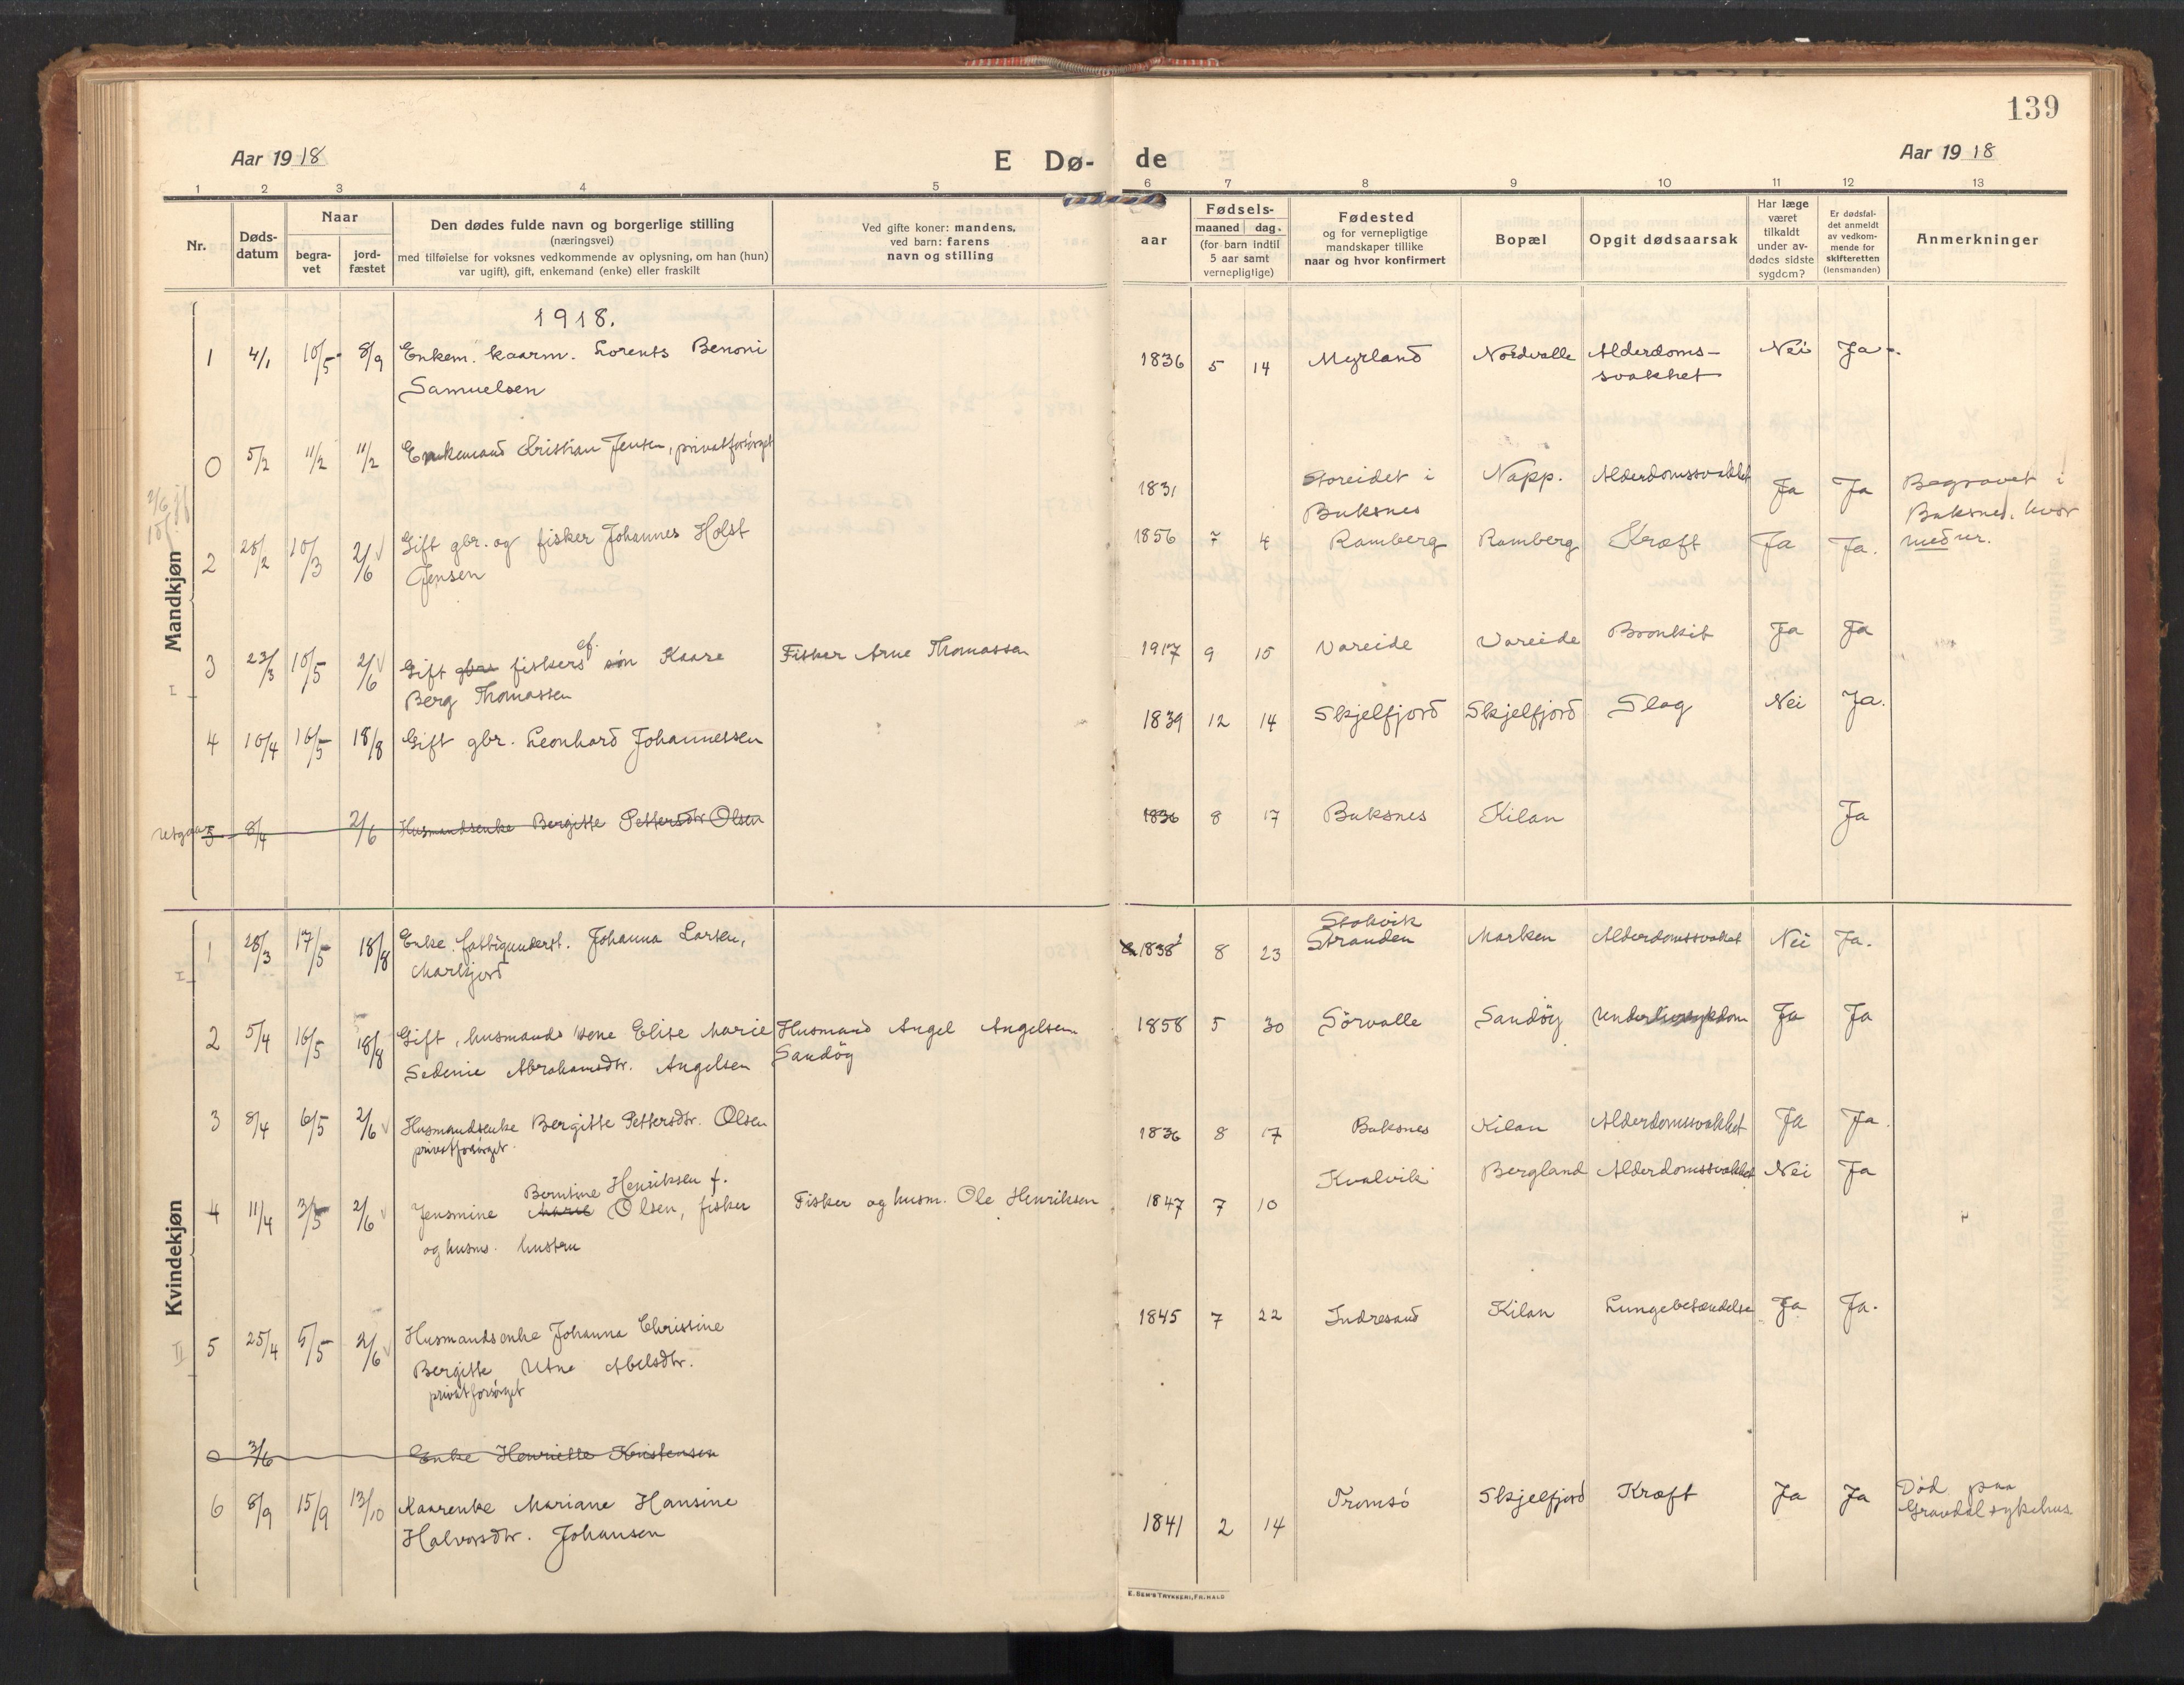 139
Aar 1918
E Dø- de
Aar 1918
1 2 3 4 5 6 7 8 9 10 11 12 13
Nr.
Døds-
datum
Naar
begra-
vet
jord-
fæstet
Den dødes fulde navn og borgerlige stilling
(næringsvei)
med tilføielse for voksnes vedkommende av oplysning, om han (hun)
var ugift), gift, enkemand (enke) eller fraskilt
Ved gifte koner: mandens,
ved barn: farens
navn og stilling
aar
Fødsels-
maaned dag-
(for barn indtil
5 aar samt
vernepligtige)
Fødested
og for vernepligtige
mandskaper tillike
naar og hvor konfirmert
Bopæl
Opgit dødsaarsak
Har læge
været
tilkaldt
under av-
dødes sidste
sygdom?
Er dødsfal-
det anmeldt
av vedkom-
mende for
skifteretten
(lensmanden)
Anmerkninger
Mandkjøn
1918.
1 4/1 10/5 8/9 Enkem. kaarm. Lorents Benoni
Samuelsen
1836 5 14 Myrland Nordvalle Alderdoms-
svakhet
Nei Ja.
0 5/2 11/2 11/2 Enkemand Kristian Jensen, privatforsörget
1831 Storeidet i
Buksnes
Napp. Alderdomssvakhet Ja Ja Begravet i
Buksnes, hvor
medr.
2 28/2 10/3 2/6 Gift gbr. og fisker Johannes Holst
Jensen
1856 7 4 Ramberg Ramberg Kræft Ja Ja.
3 23/3 10/5 2/6 Gift gbrs fiskers ef. søn Kaare
Berg Thomassen
Fisker Arne Thomassen
1917 9 15 Vareide Vareide Bronkit Ja Ja
4 10/4 16/5 18/8 Gift gbr. Leonhard Johannessen
1839 12 14 Skjelfjord Skjelfjord Slag Nei Ja.
utgaar 5 8/4 2/6 Husmandsenke Bergitte Pettersdtr Olsen
1836 8 17 Buksnes Kilan Ja
Kvindekjøn
1 28/3 17/5 18/8 Enke. fattigunderst. Johanna Larsen,
Markjord
1838 8 23 Stokvik
Stranden
Marken Alderdomssvakhet Nei Ja.
2 5/4 16/5 18/8 Gift, husmands kone Elise Marie
Sedenie Abrahamsdtr. Angelsen
Husmand Angel Angelsen
Sandöy
1858 5 30 Sörvalle Sandöy Underlivssykdom Ja Ja
3 8/4 6/5 2/6 Husmandsenke Bergitte Pettersdtr. Olsen
privatforsörget.
1836 8 17 Buksnes Kilan Alderdomssvakhet Ja Ja.
4 11/4 3/5 2/6 Jensmine Marie Berntine Henriksen f.
Olsen, fisker
og husms. hustru
Fisker og husm. Ole Henriksen
1847 7 10 Kvalvik Bergland Alderdomssvakhet Nei Ja
5 25/4 5/5 2/6 Husmandsenke Johanna Christine
Bergitte Utne Abelsdtr.
privatforsörget
1845 7 22 Indresand Kilan Lungebetændelse Ja Ja.
0 3/6 Enke Henriette Kristensen
6 8/9 15/9 13/10 Kaarenke Mariane Hansine
Halvorsdtr. Johansen
1841 2 14 Tromsö Skjelfjord Kræft Ja Ja Död paa
Gravdal sykehus.
E. SEM'S TRYKKERI, FR.HALD